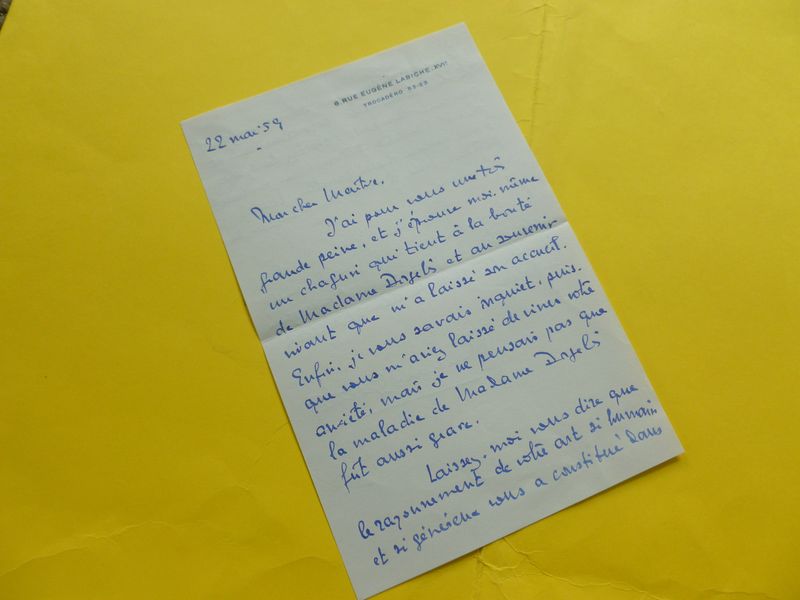 6 RUE EUGÈNE LABICHE. XVIᵉ
TROCADÉRO 53-53
22 mai 59
Mon cher Maître,
J'ai pour vous une très
grande peine, et j'éprouve moi-même
un chagrin qui tient à la bonté
de Madame et au souvenir
vivant que m'a laissé son accueil.
Enfin, je vous savais inquiet, puis-
que vous m'aviez laissé deviner votre
anxiété, mais je ne pensais pas que
la maladie de Madame
fût aussi grave.
Laissez-moi vous dire que
le rayonnement de votre art si humain
et si généreux vous a constitué dans